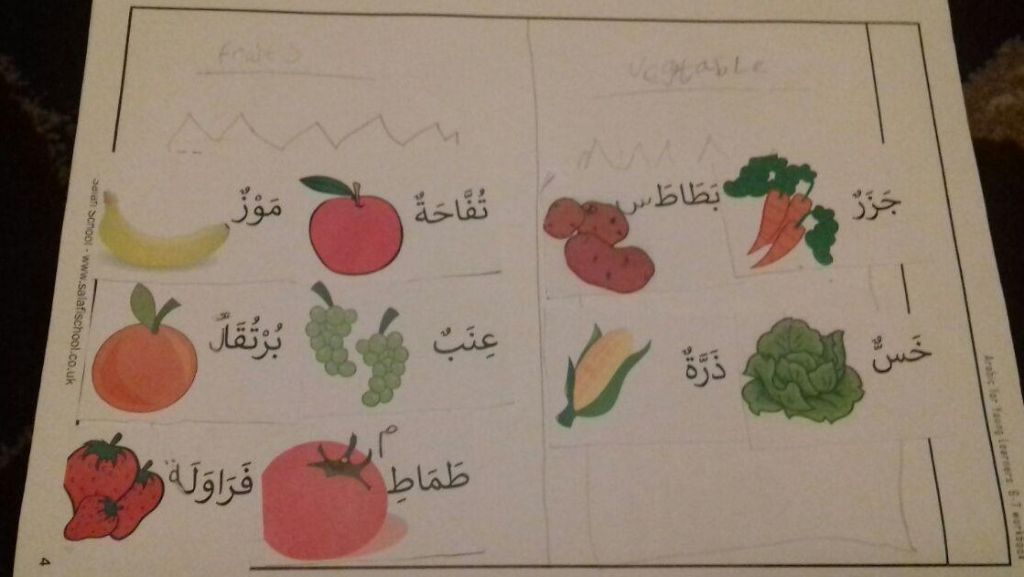 Fruits
Vegetable
تُفَّاحَةٌ
مَوْزٌ
عِنَبٌ
بُرْتُقَالٌ
طَمَاطِم
فَرَاوَلَة
جَزَرٌ
بَطَاطَس
خَسٌّ
ذَرَّةٌ
Salafi School - www.salafischool.co.uk
4
Arabic for Young Learners 6.7 workbook